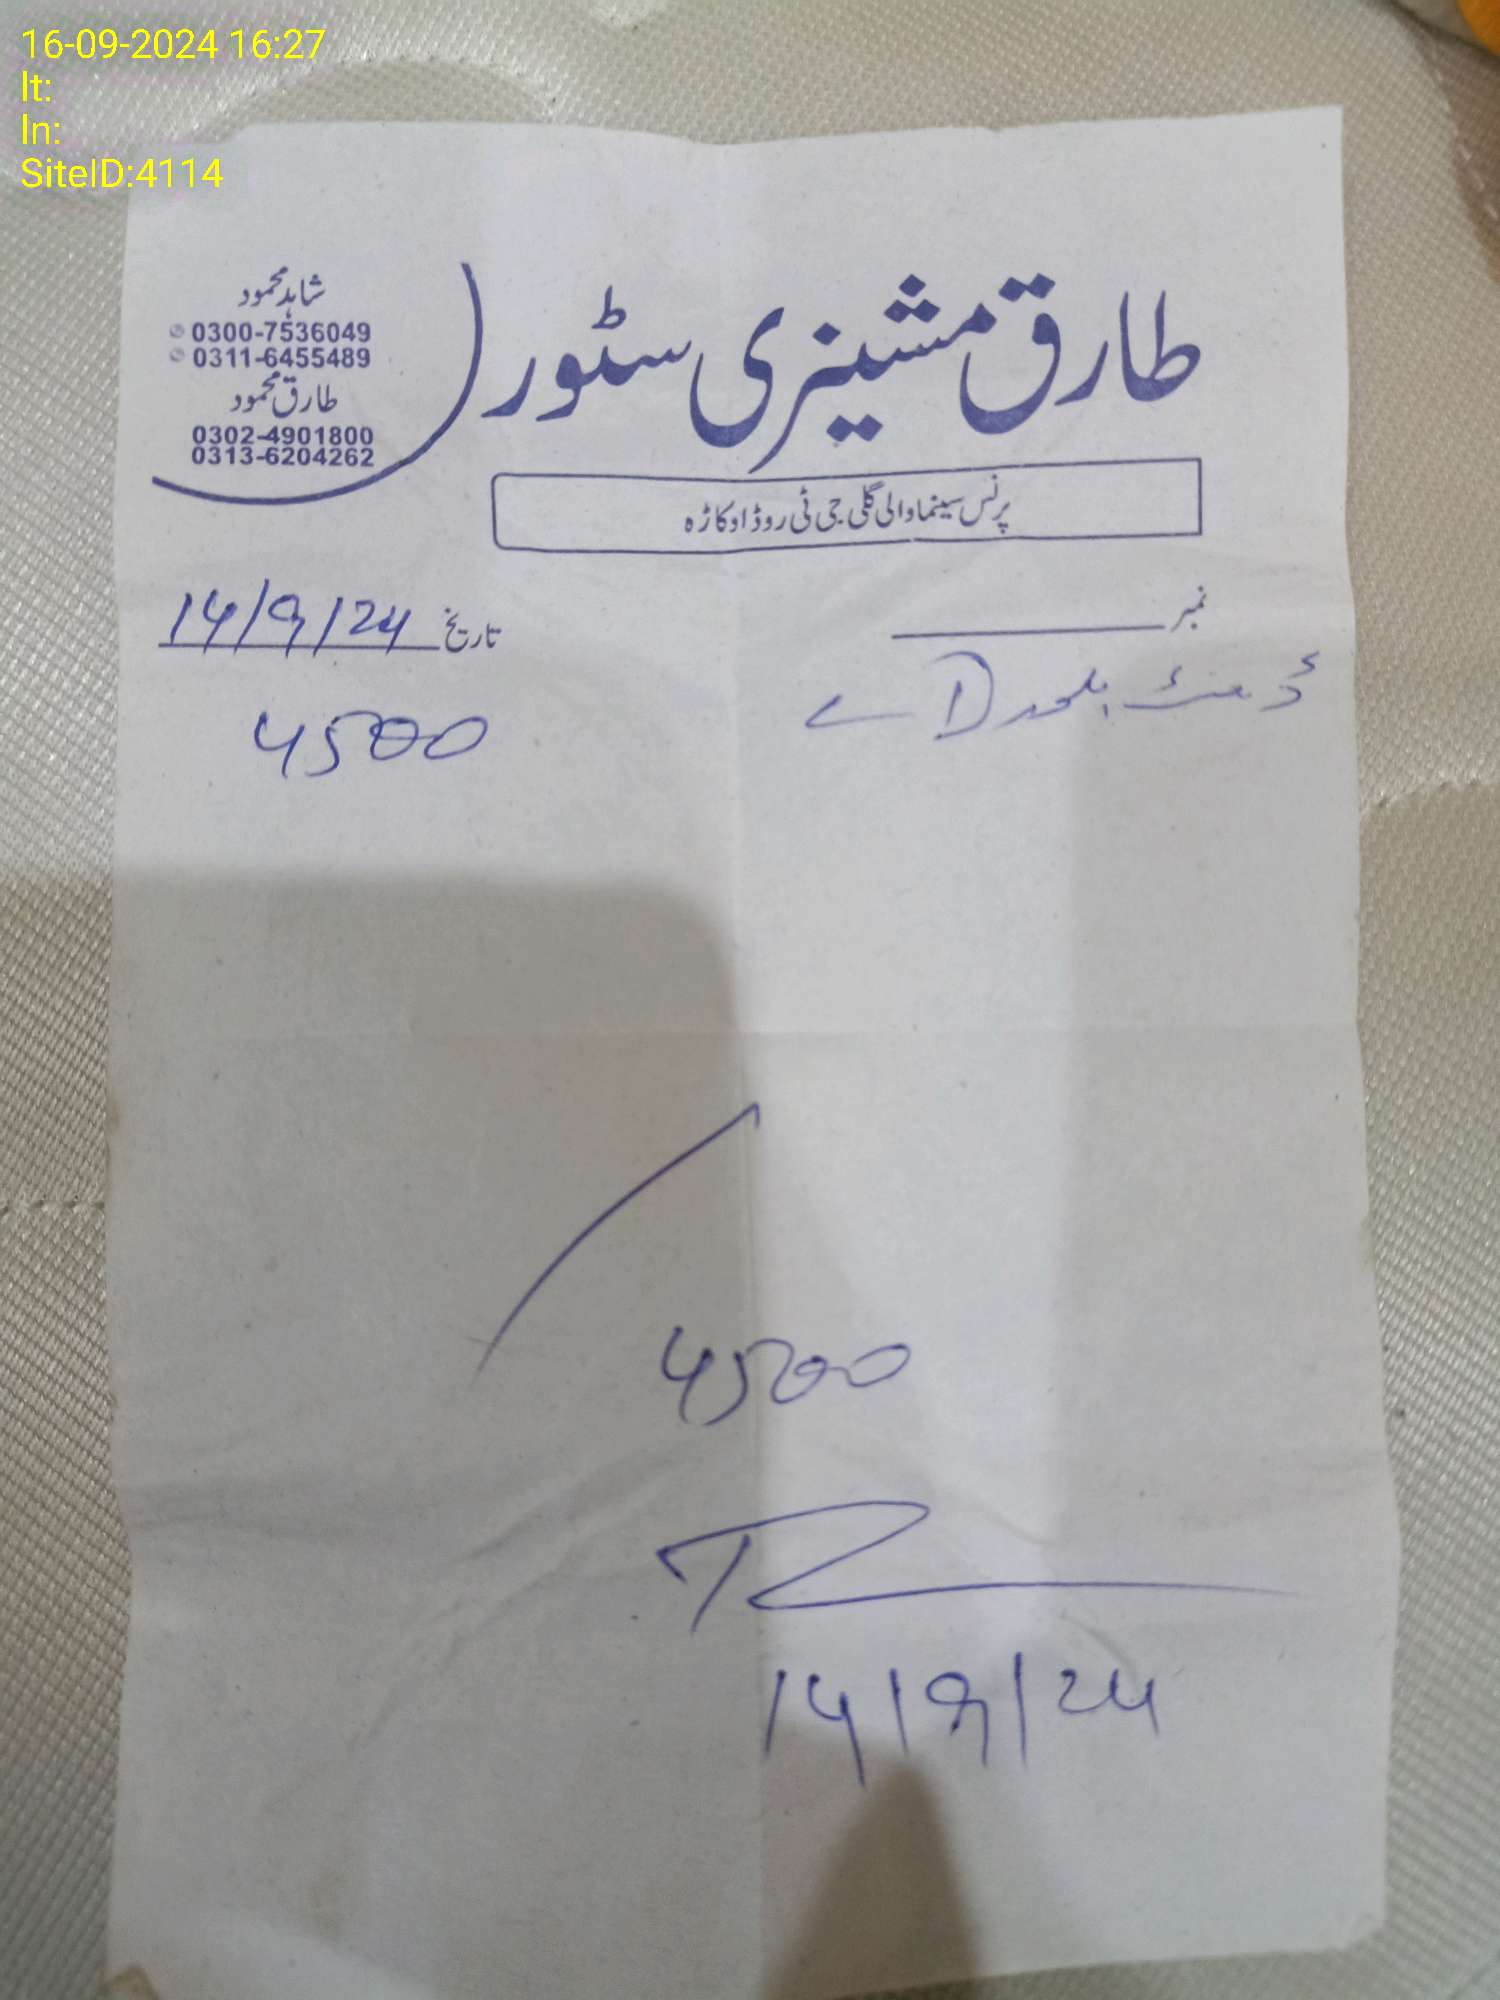 16-09-2024 16:27
lt:
ln:
SiteID:4114
طارق مشینری سٹور
شاہد محمود
0300-7536049
0311-6455489
طارق محمود
0302-4901800
0313-6204262
پرنس سینما والی گلی جی ٹی روڈ اوکاڑہ
نمبر
تاریخ 14/9/24
4500
4500
14/9/24